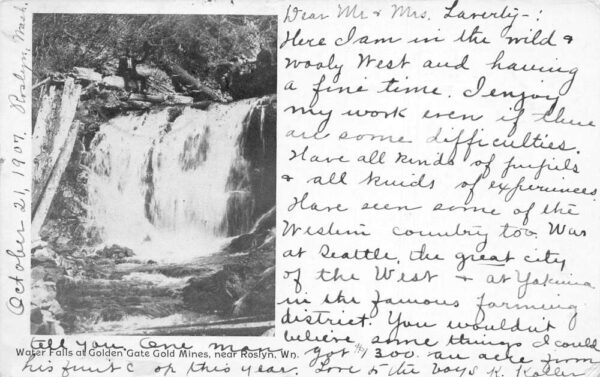 October 21, 1907 Roslyn, Wash.
Dear Mr & Mrs. Laverty-:
Here I am in the wild &
wooly West and having
a fine time. I enjoy
my work even if there
are some difficulties.
Have all kinds of pupils
& all kinds of experiences.
Have seen some of the
Western country too. Was
at Seattle, the great city
of the West & at Yakima
in the famous farming
district. You wouldn't
believe some things I could
tell you. One man got $1300. an acre from
Water Falls at Golden Gate Gold Mines, near Roslyn, Wn.
his fruit of this year. Love to the boys K.